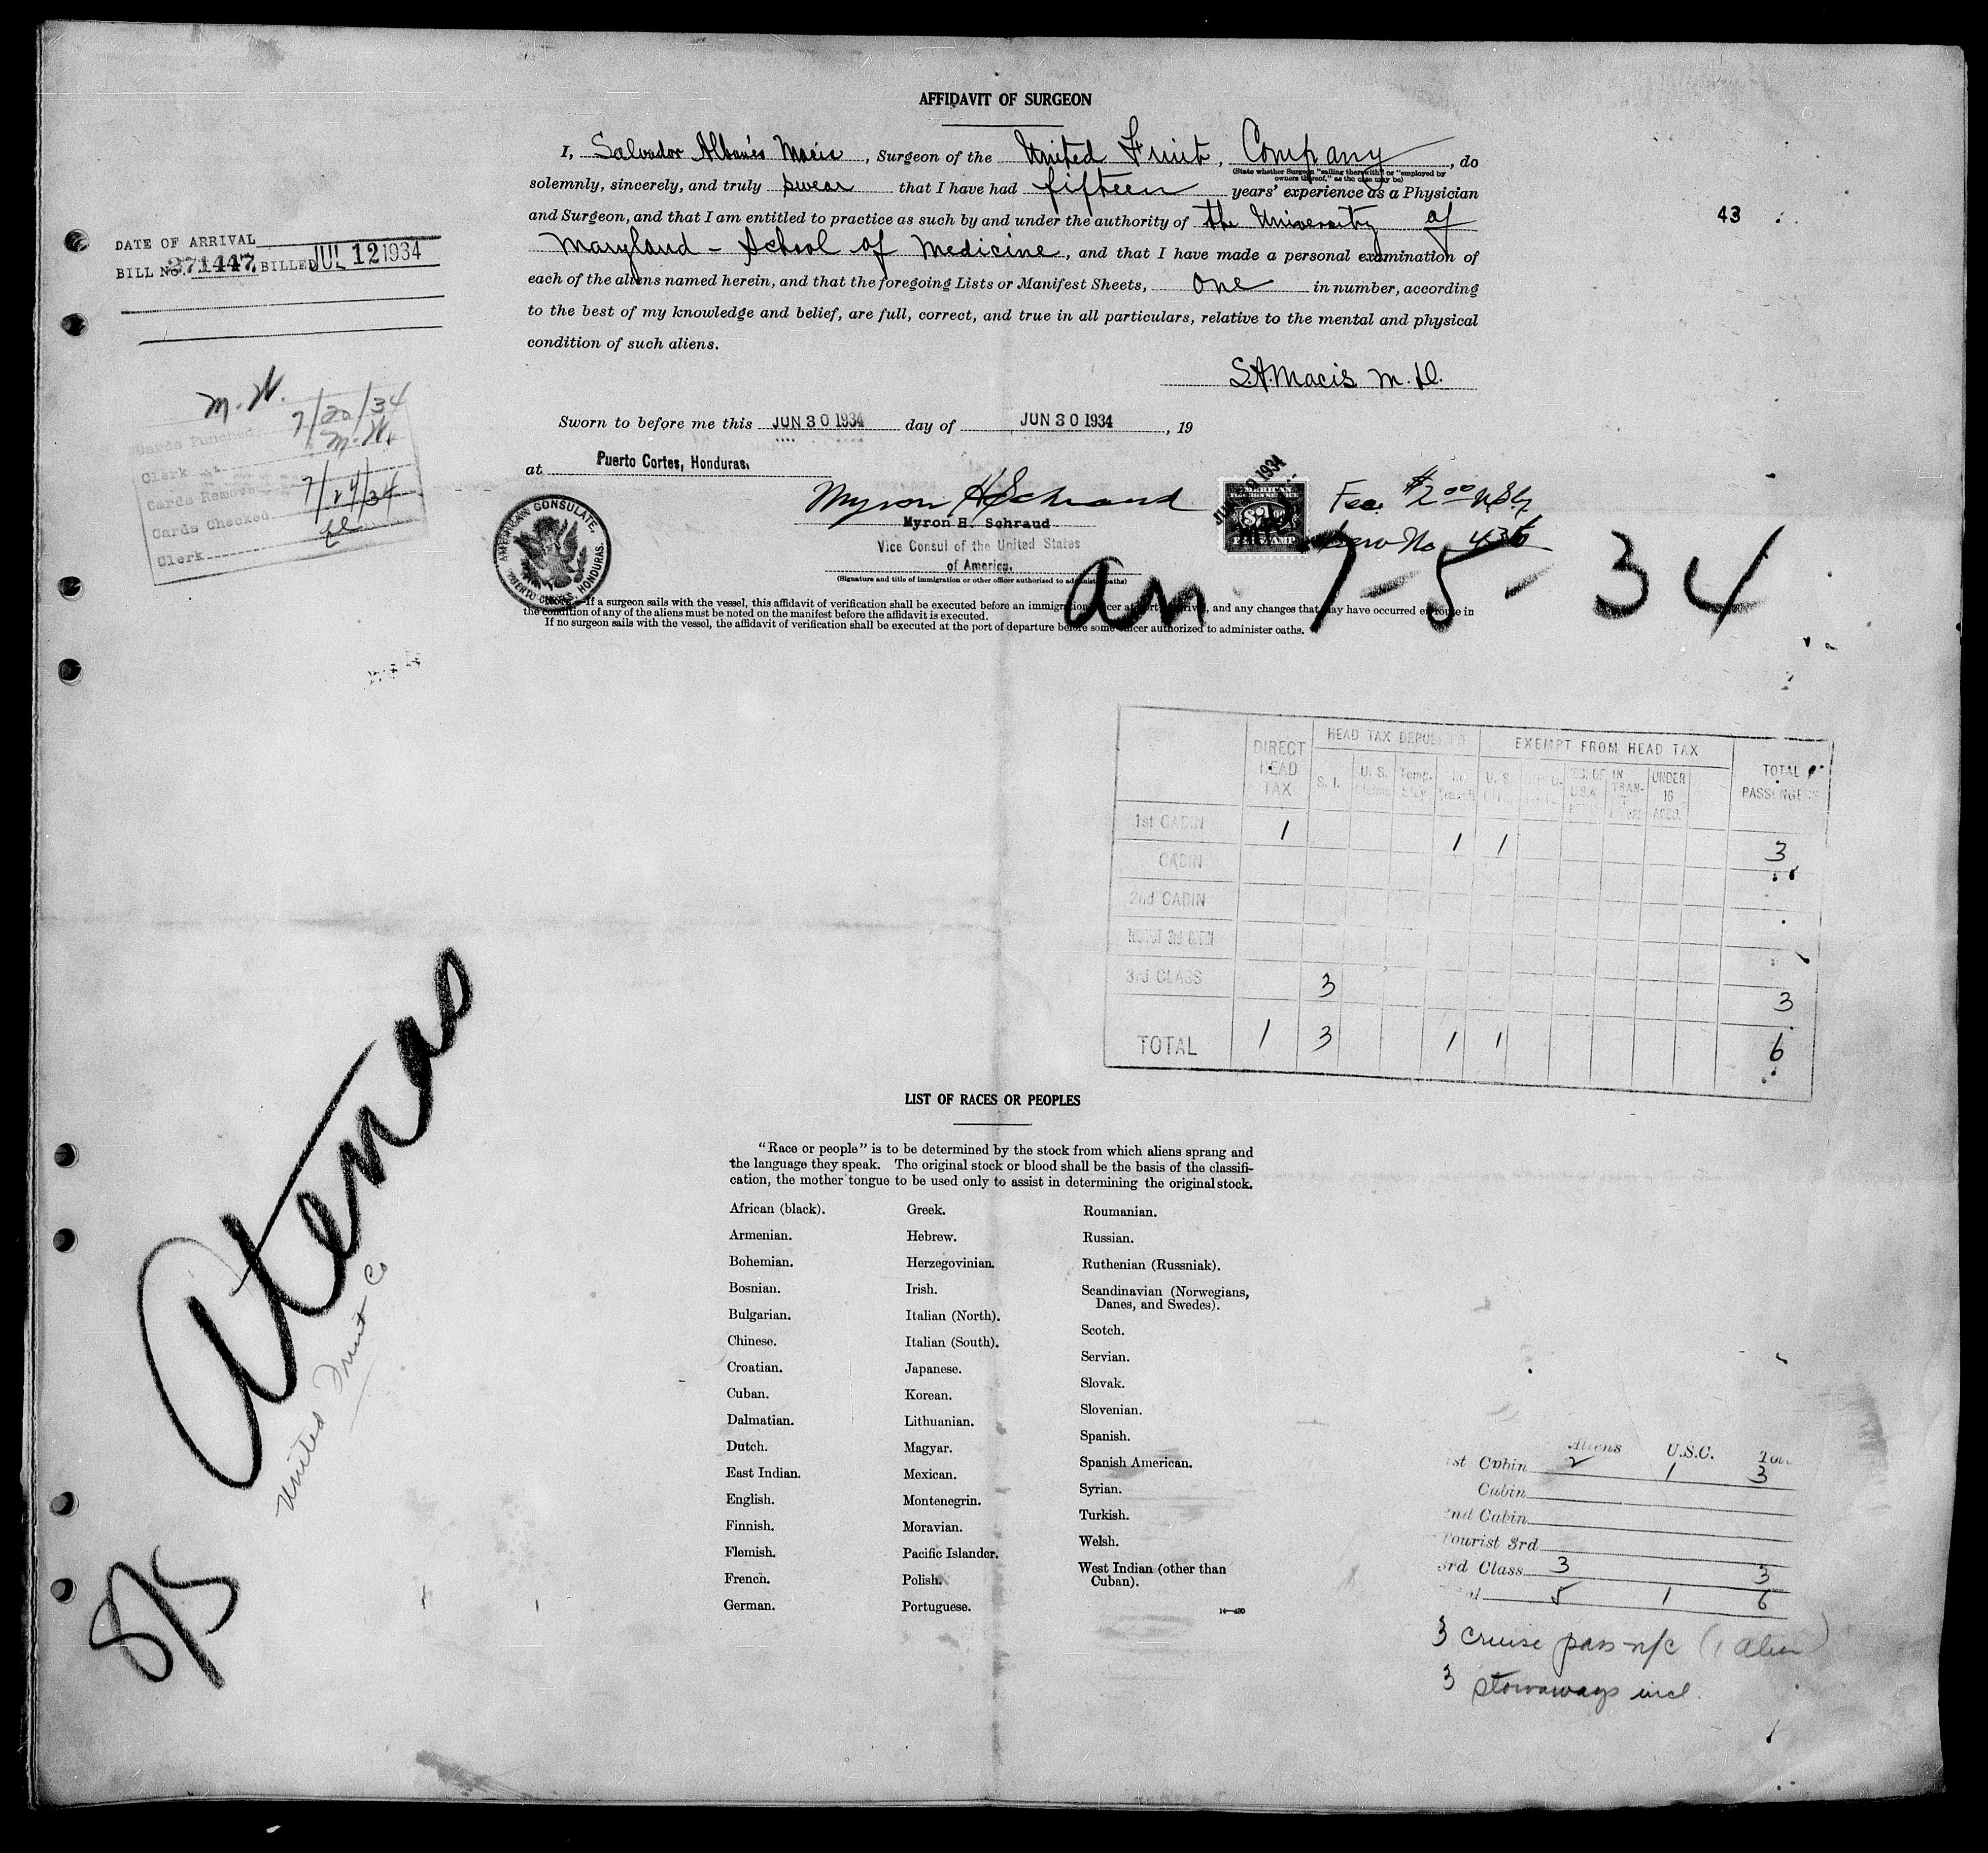 AFFIDAVIT OF SURGEON
I, Salvador Albanés Macis, Surgeon of the United Fruit, Company, do
(State whether Surgeon "sailing therewith" or "employed by owners thereof," as the case may be)
solemnly, sincerely, and truly swear that I have had fifteen years' experience as a Physician
and Surgeon, and that I am entitled to practice as such by and under the authority of the University of
Maryland - School of Medicine, and that I have made a personal examination of
each of the aliens named herein, and that the foregoing Lists or Manifest Sheets, one in number, according
to the best of my knowledge and belief, are full, correct, and true in all particulars, relative to the mental and physical
condition of such aliens.
S.A. Macis M.D.
43
DATE OF ARRIVAL
BILL No. 271447 BILLED JUL 12 1934
M.W.
Cards Punched 7/20/34
Clerk M.W.
Cards Removed
Cards Checked 7/24/34
Clerk
Sworn to before me this JUN 30 1934 day of JUN 30 1934, 19
at Puerto Cortes, Honduras.
Myron H Schraud
Myron H. Schraud
Vice Consul of the United States
of America.
(Signature and title of immigration or other officer authorized to administer oaths)
AMERICAN CONSULATE, PUERTO CORTES, HONDURAS.
Fee $2.00
No. 436
an 7-5-34
If a surgeon sails with the vessel, this affidavit of verification shall be executed before an immigration officer at port of arrival, and any changes that may have occurred en route in
the condition of any of the aliens must be noted on the manifest before the affidavit is executed.
If no surgeon sails with the vessel, the affidavit of verification shall be executed at the port of departure before some officer authorized to administer oaths.
DIRECT HEAD TAX HEAD TAX DEPOSITED EXEMPT FROM HEAD TAX TOTAL PASSENGERS
S. I. U. S. Temp. Stay U. S. IN TRAN- UNDER 16 ACCO.
1st CABIN 1 1 1 3
CABIN
2nd CABIN
3rd CLASS 3 3
TOTAL 1 3 1 1 6
Atenas
United Fruit Co
8/5
LIST OF RACES OR PEOPLES
"Race or people" is to be determined by the stock from which aliens sprang and
the language they speak. The original stock or blood shall be the basis of the classifi-
cation, the mother tongue to be used only to assist in determining the original stock.
African (black).
Armenian.
Bohemian.
Bosnian.
Bulgarian.
Chinese.
Croatian.
Cuban.
Dalmatian.
Dutch.
East Indian.
English.
Finnish.
Flemish.
French.
German.
Greek.
Hebrew.
Herzegovinian.
Irish.
Italian (North).
Italian (South).
Japanese.
Korean.
Lithuanian.
Magyar.
Mexican.
Montenegrin.
Moravian.
Pacific Islander.
Polish.
Portuguese.
Roumanian.
Russian.
Ruthenian (Russniak).
Scandinavian (Norwegians,
Danes, and Swedes).
Scotch.
Servian.
Slovak.
Slovenian.
Spanish.
Spanish American.
Syrian.
Turkish.
Welsh.
West Indian (other than
Cuban).
14—430
Aliens U.S.C. Total
1st Cabin 2 1 3
Cabin
2nd Cabin
Tourist 3rd
3rd Class 3 3
Total 5 1 6
3 cruise pass n/c (1 alien)
3 stowaways incl.